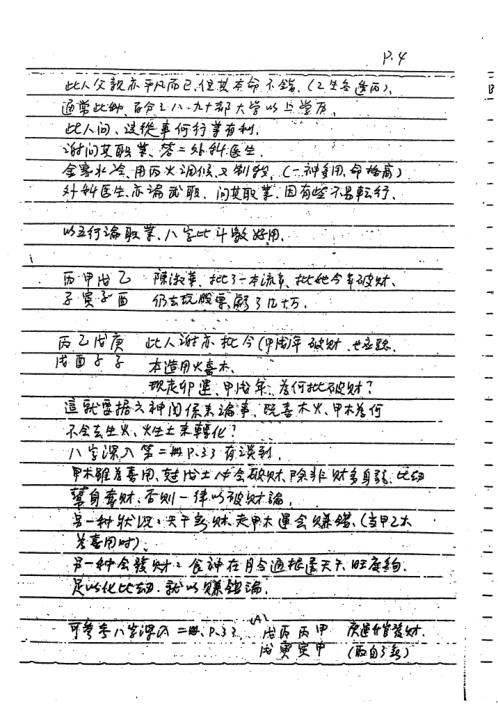 P.4
此人父親亦平凡而已,但其本命不錯、(乙生冬逢丙)、
通常此种、百分之八、九十都大学以上学历、
此人问、这從事何行業有利、
謝问其职業、答=外科医生、
金寒水冷、用丙火调候、又制殺、(一神兩用、命格高)
外科医生、亦論武职、问其职業、因有些不易転行、
以五行論职業、八字比斗数好用、
丙甲戊乙 陳淑華、批了一本流年、批她今年破財、
子寅子酉 仍去玩股票、虧了几十万、
丙乙戊庚 此人謝亦批今(甲戌)年破財、也
戌酉子子 本造用火喜木、
現走卯運、甲戌年、為何批破財?
這就要据六神的係來論事、既喜木火、甲木為何
不会去生火、火生土來轉化?
八字深入第二冊P.33有談到、
甲木雖為喜用、尅戊土仍会破財、除非財多身弱、比劫
幫身奪財、否則一律以破財論、
另一种状况:天干多財、走甲木運会賺錢、(当甲乙木
為喜用时)、
另一种会發財:食神在月令通根透天干、旺度夠、
足以化比劫、就以賺錢論、
可參考八字深入二冊、P.33 (A) 戊丙丙甲 庚運
戌寅寅甲